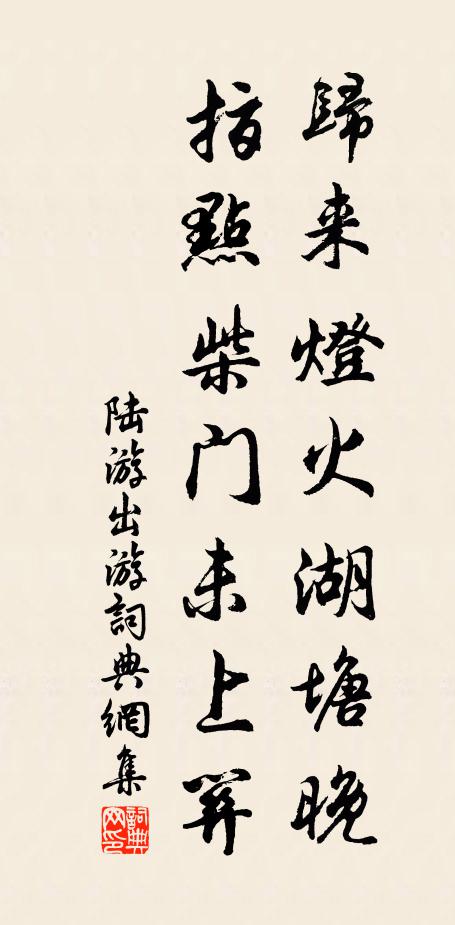 歸来燈火湖塘晚
指點柴门未上關
陆游出游詞典網集
詞典网印